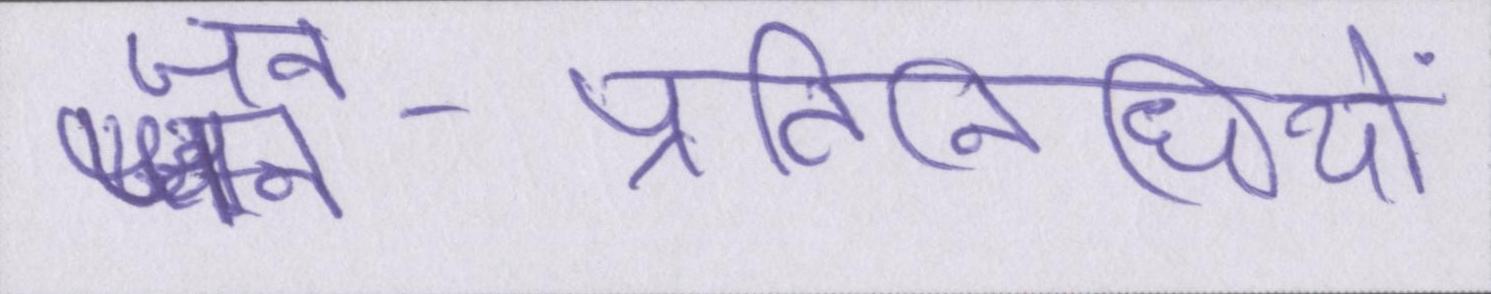 जन - प्रतिनिधियों